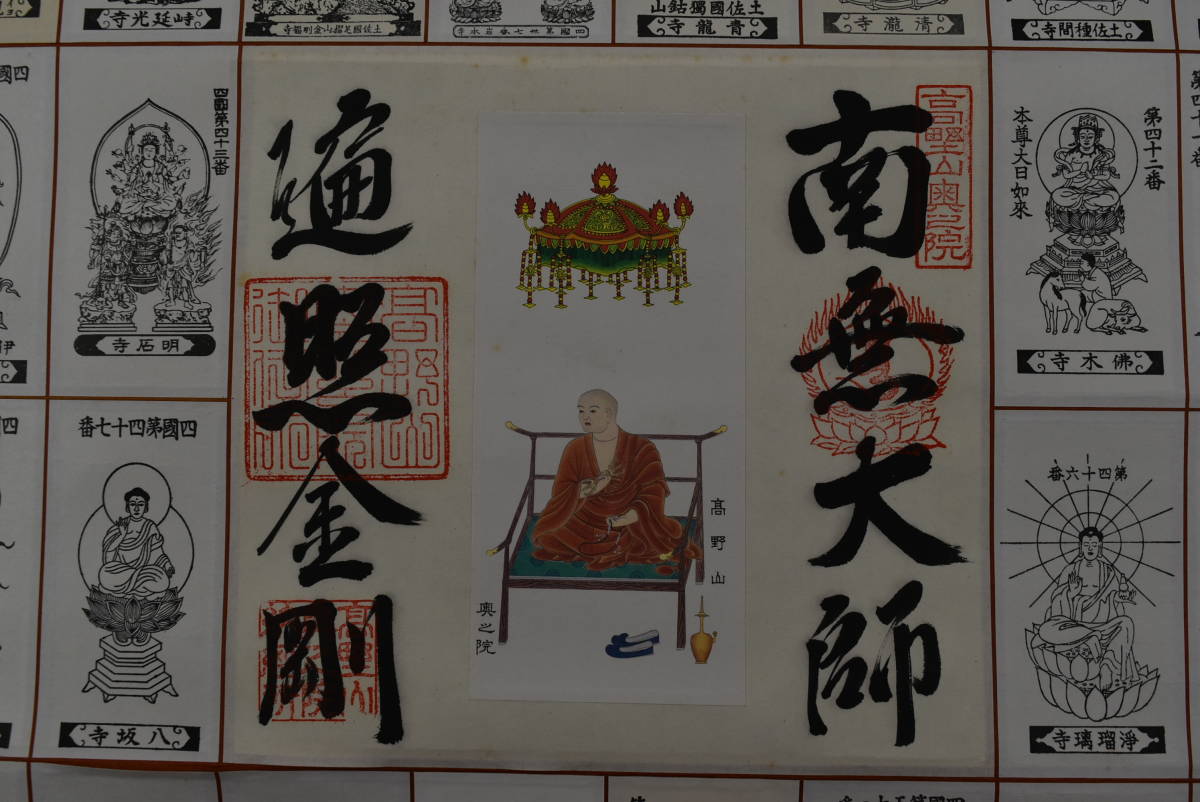 南無大師
遍照金剛
高野山奥之院
髙野山
奥之院
第四十二番
本尊大日如來
佛木寺
四國第四十三番
明石寺
第四十六番
淨瑠璃寺
四國第四十七番
八坂寺
峙延光寺
土佐國足摺山金剛福寺
四國第卅七番岩本寺
土佐國獨鈷山
青龍寺
清瀧寺
土佐種間寺